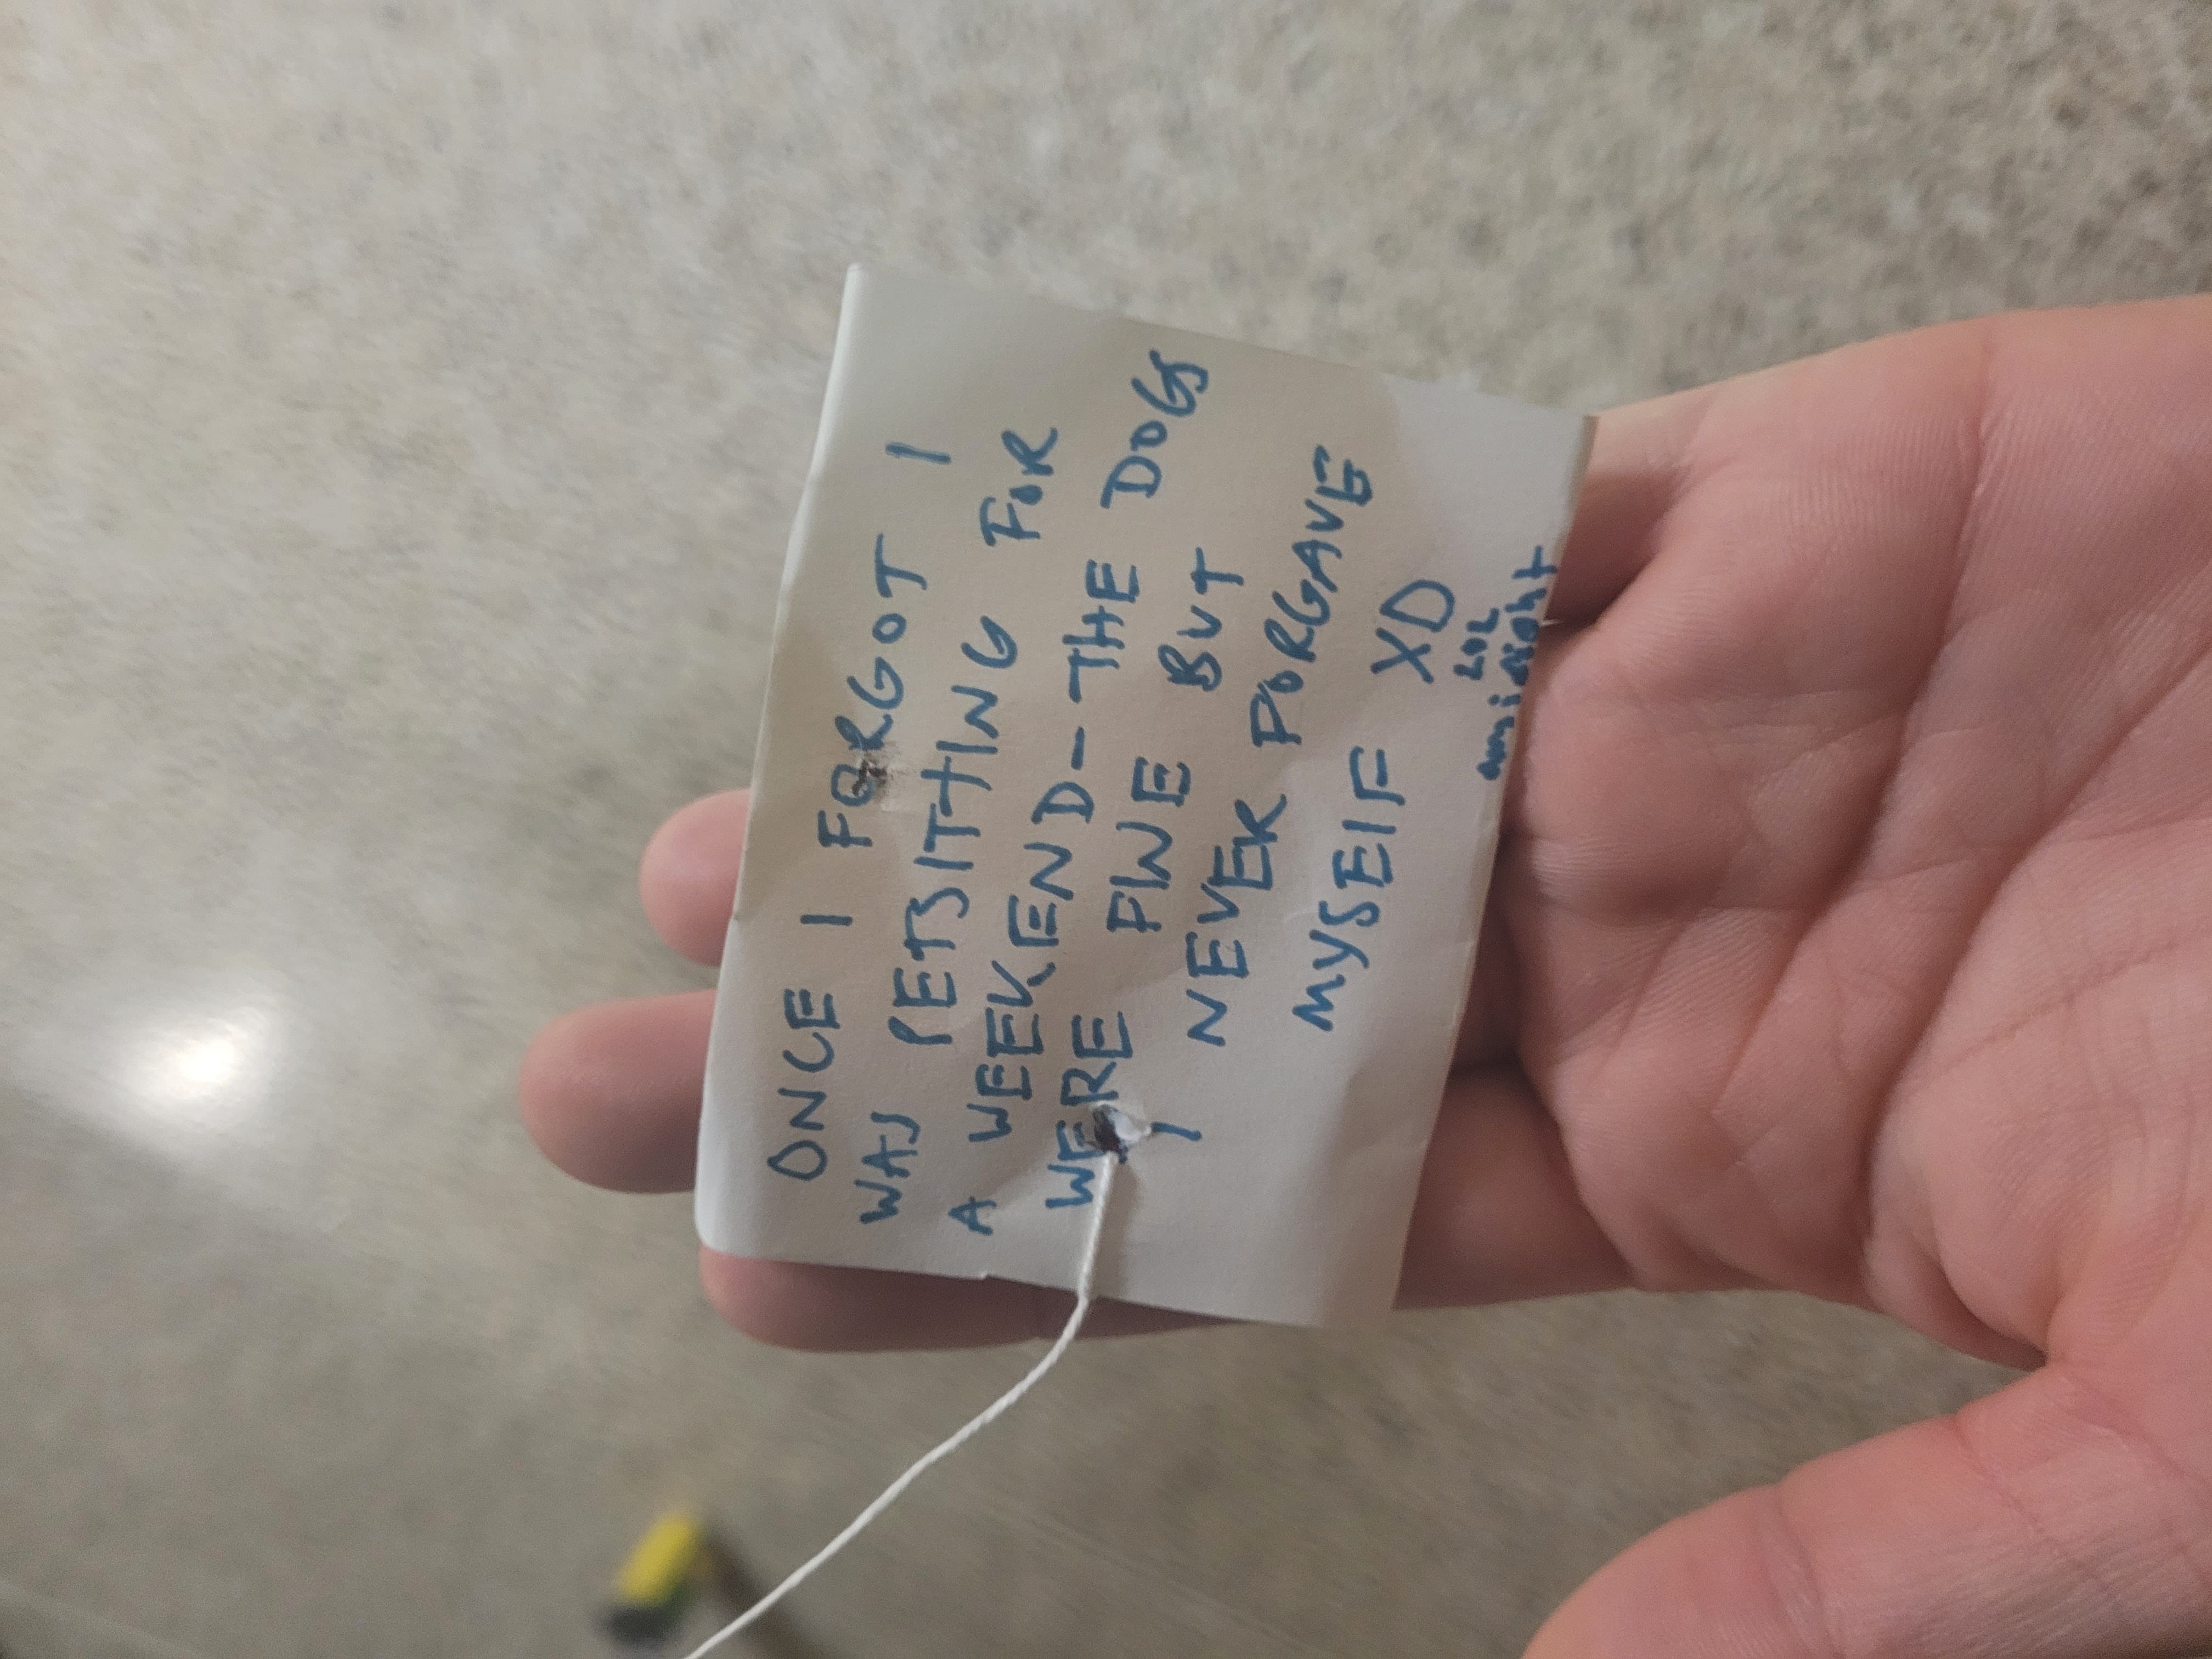 ONCE I FORGOT I
WAS PETSITTING FOR
A WEEKEND - THE DOGS
WERE FINE BUT
I NEVER FORGAVE
MYSELF XD
LOL
amiright